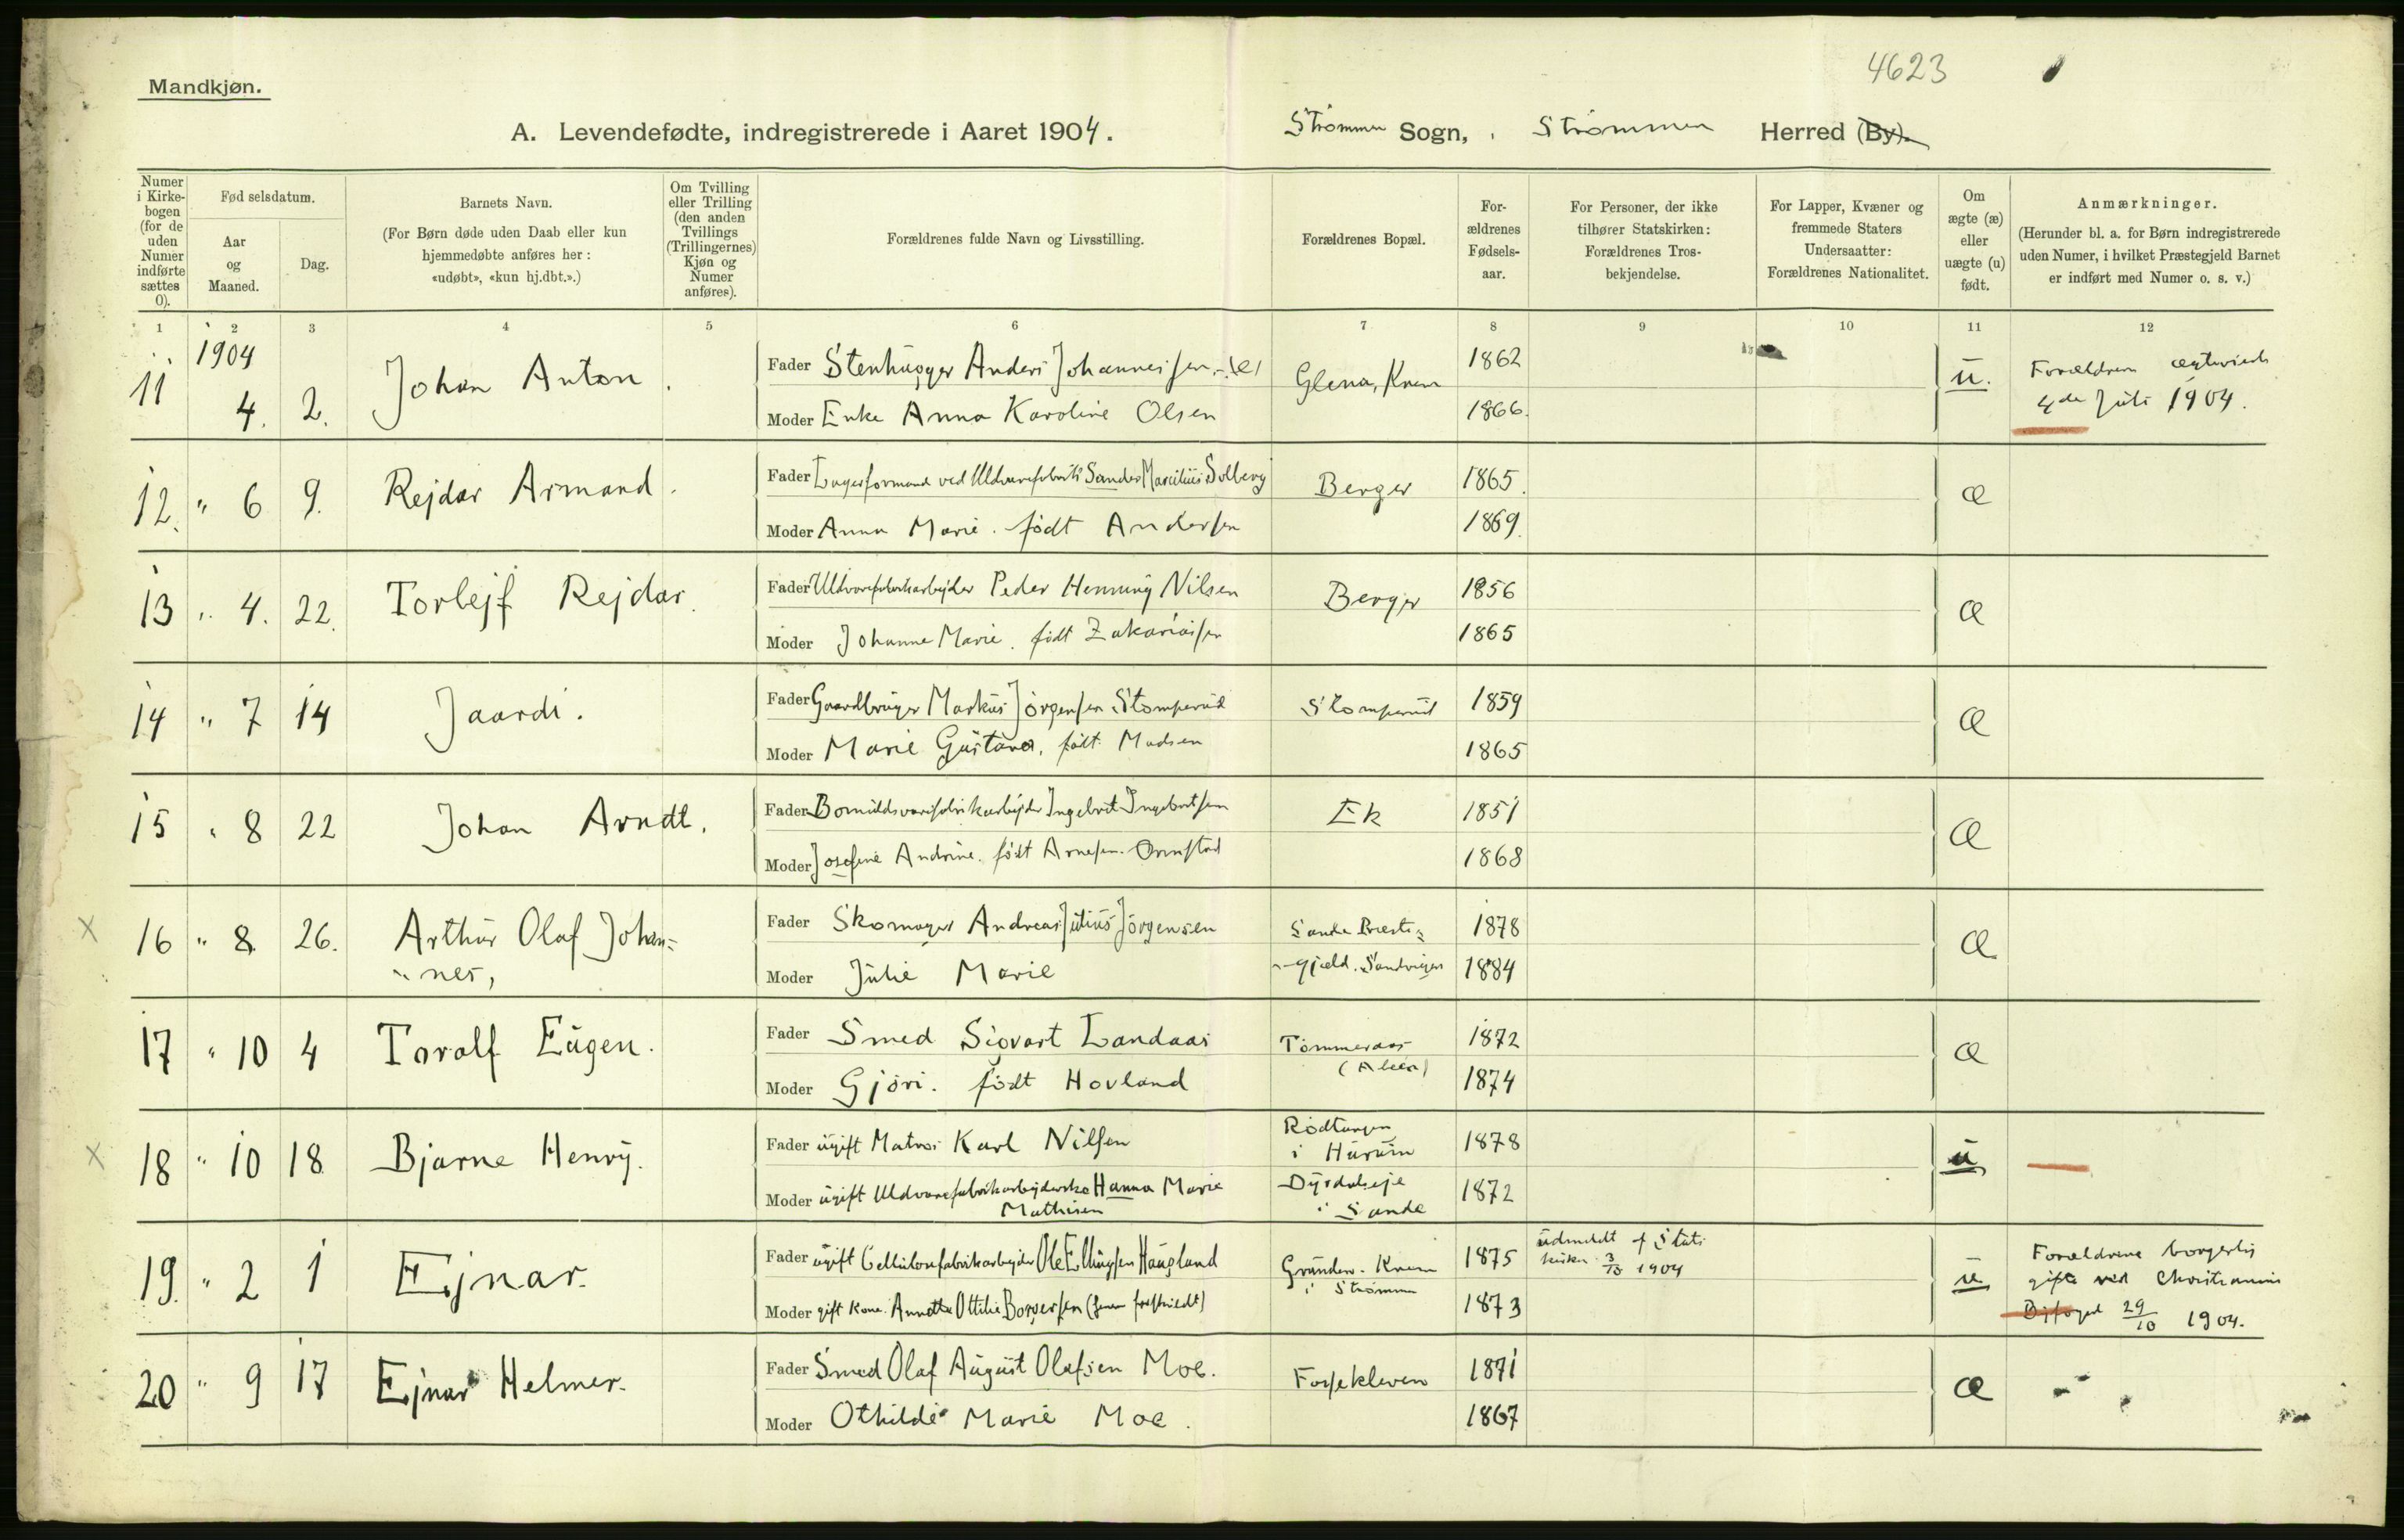 4623
Mandkjøn.
A. Levendefødte, indregistrerede i Aaret 1904. Strømmen Sogn, Strømmen Herred (By).
Numer i Kirkebogen (for de uden Numer indførte sættes 0).
Fødselsdatum.
Aar og Maaned.
Dag.
Barnets Navn.
(For Børn døde uden Daab eller kun hjemmedøbte anføres her: «udøbt», «kun hj.dbt.».)
Om Tvilling eller Trilling (den anden Tvillings (Trillingernes) Kjøn og Numer anføres).
Forældrenes fulde Navn og Livsstilling.
Forældrenes Bopæl.
Forældrenes Fødselsaar.
For Personer, der ikke tilhører Statskirken: Forældrenes Trosbekjendelse.
For Lapper, Kvæner og fremmede Staters Undersaatter: Forældrenes Nationalitet.
Om ægte (æ) eller uægte (u) født.
Anmærkninger.
(Herunder bl. a. for Børn indregistrerede uden Numer, i hvilket Præstegjeld Barnet er indført med Numer o. s. v.)
1 2 3 4 5 6 7 8 9 10 11 12
1904
11 4. 2. Johan Anton.
Fader Stenhugger Anders Johannessen
Moder Enke Anna Karoline Olsen
Glena, Krem 1862 1866. u.
Forældrene
4de Juli 1904.
12. " 6 9. Rejdar Armand.
Fader Lagerformand ved Uldvarefabrik Sander Marcilius Solberg
Moder Anna Marie. født Andersen
Berger 1865. 1869. æ
13 " 4. 22. Torlejf Rejdar.
Fader Uldvarefabrikarbejder Peder Henning Nilsen
Moder Johanne Marie. født Zakariassen
Berger 1856 1865 æ
14 " 7 14 Jaardi.
Fader Gaardbruger Markus Jørgensen Stomperud
Moder Marie Gustava, født Madsen
Stomperud 1859 1865 æ
15 " 8 22 Johan Arndt.
Fader Bomuldsvarefabrikarbejder Ingebret Ingebretsen
Moder Josefine Andrine. født Arnesen Ormstad
Ek 1851 1868 æ
x 16 " 8 26. Arthur Olaf Johan=
"nes,
Fader Skomager Andreas Julius Jörgensen
Moder Julie Marie
Sande Præste=
gjeld. 1878 1884 æ
17 " 10 4 Toralf Eugen.
Fader Smed Sigvart Landaas
Moder Gjöri. født Hovland
Tömmeraas 1872 1874 æ
x 18 " 10 18 Bjarne Henry.
Fader ugift Matros Karl Nilsen
Moder ugift Uldvarefabrikarbejderske Hanna Marie
Mathisen
Rødtangen
i Hurum
Dyrdalseje
i Sande 1878 1872 u
19. " 2 1 Ejnar.
Fader ugift Cellulosefabrikarbejder Ole Ellingsen Haugland
Moder gift Kone Annette Ottilie Borgersen (fraskildt)
Krem
i Strømmen 1875 1873
udmeldt af Stats
kirken 3/10 1904
u
Forældrene borgerlig
gifte ved Christiania
Byfoged 29/10 1904.
20 " 9 17 Ejnar Helmer.
Fader Smed Olaf August Olafsen Moe.
Moder Othilde Marie Moe.
Fossekleven 1871 1867 æ